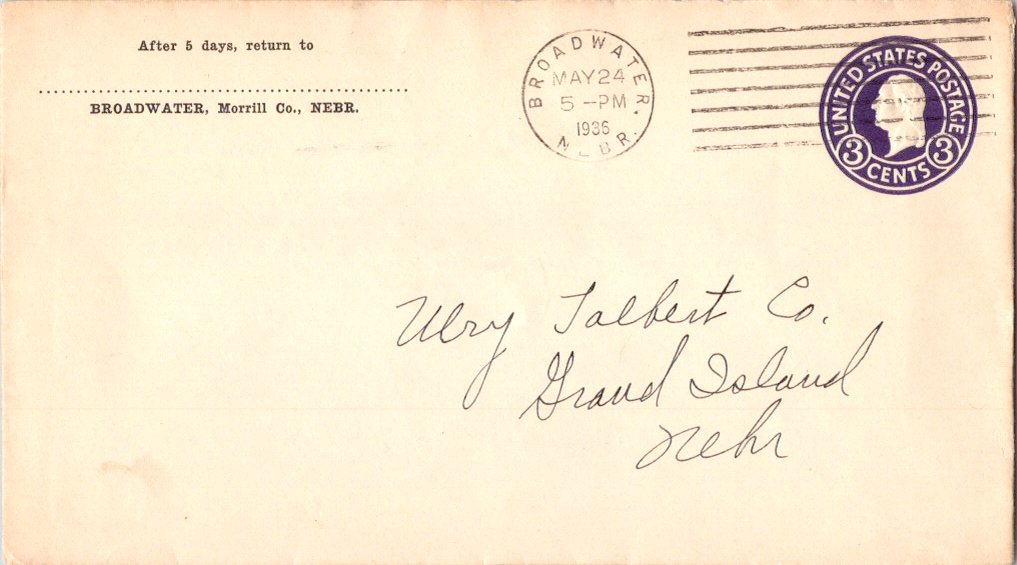 After 5 days, return to
BROADWATER, Morrill Co., NEBR.
BROADWATER, NEBR.
MAY 24
5 - PM
1936
UNITED STATES POSTAGE
3 CENTS 3
Ulry Talbert Co.
Grand Island
Nebr